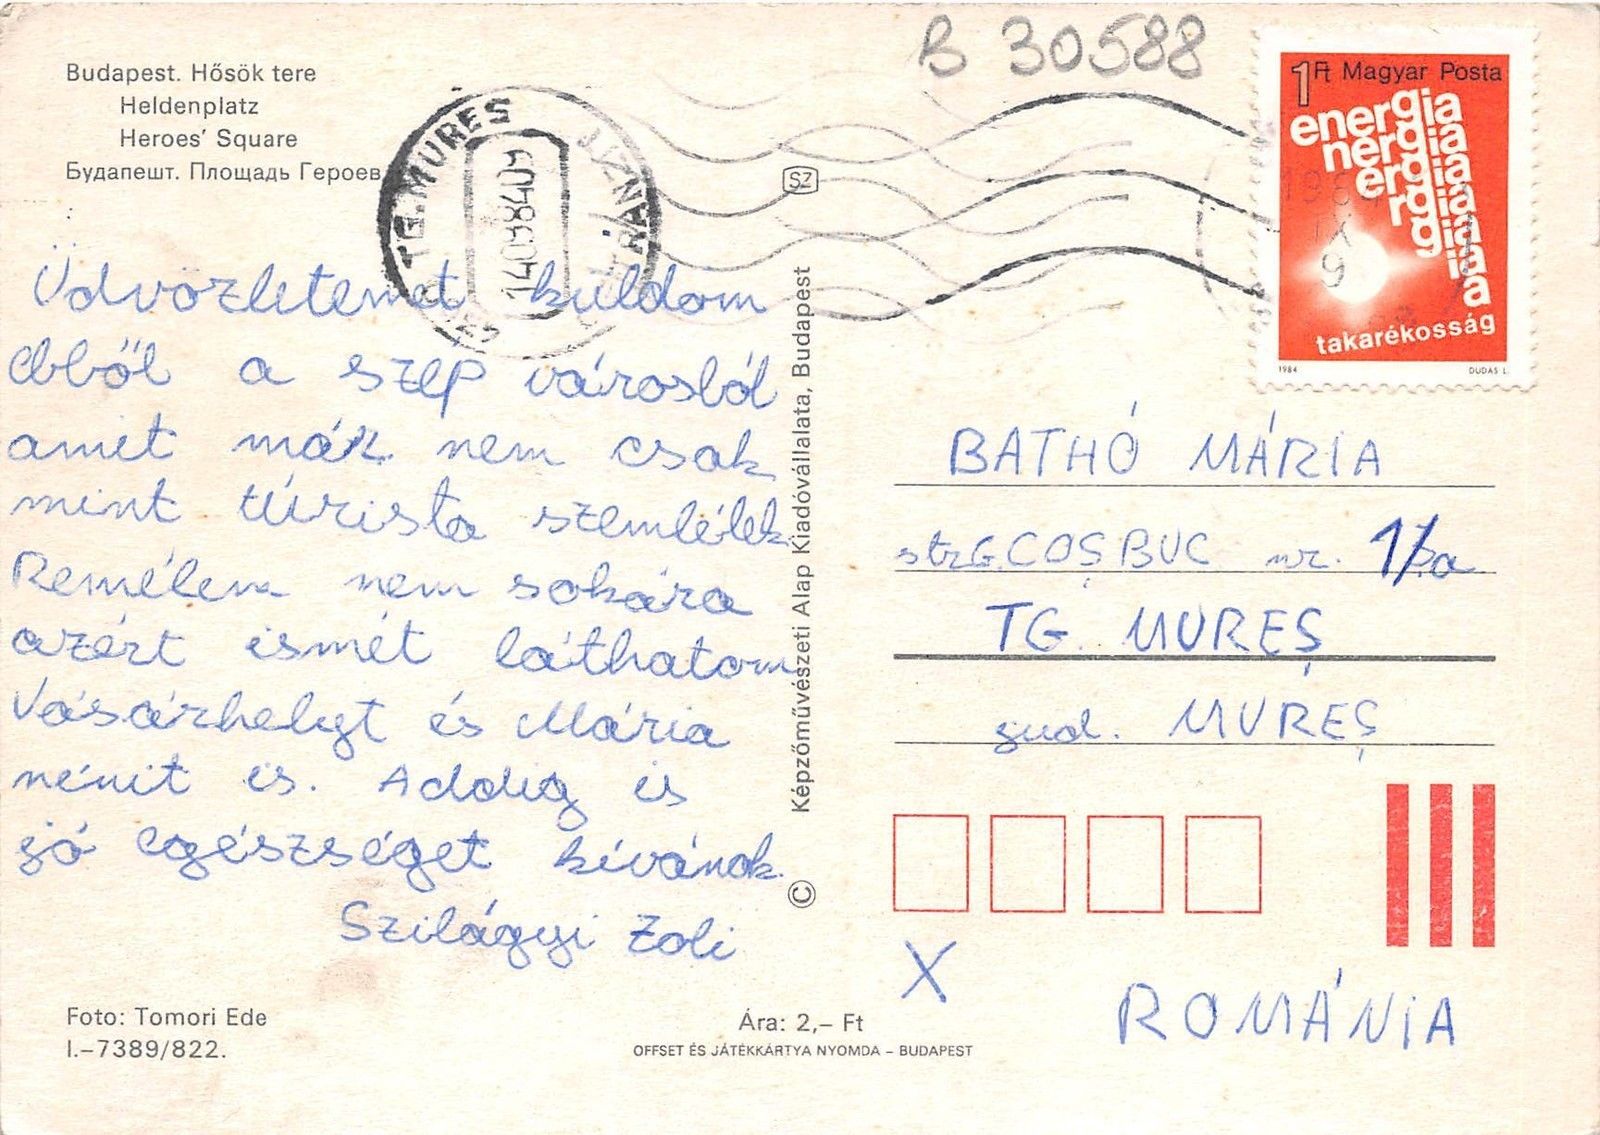 Budapest. Hősök tere
Heldenplatz
Heroes' Square
Будапешт. Площадь Героев
B 30588
TG. MURES
14098409
SZ
1Ft Magyar Posta
energia
nergia
ergia
rgia
gia
ia
a
takarékosság
1984
DUDÁS L.
Üdvözletemet küldöm
ebből a szép városból
amit már nem csak
mint túrista szemlélek.
Remélem nem sokára
azért ismét láthatom
Vásárhelyt és Mária
nénit is. Addig is
jó egészséget kívánok.
Szilágyi Zoli
Képzőművészeti Alap Kiadóvállalata, Budapest
©
BATHÓ MÁRIA
str G. COȘBUC nr. 1/a
TG. MUREȘ
jud. MUREȘ
X
ROMÁNIA
Foto: Tomori Ede
I.–7389/822.
Ára: 2,– Ft
OFFSET ÉS JÁTÉKKÁRTYA NYOMDA – BUDAPEST